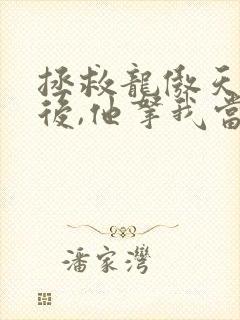 拯救龍傲天
後,他拏我當
潘家灣